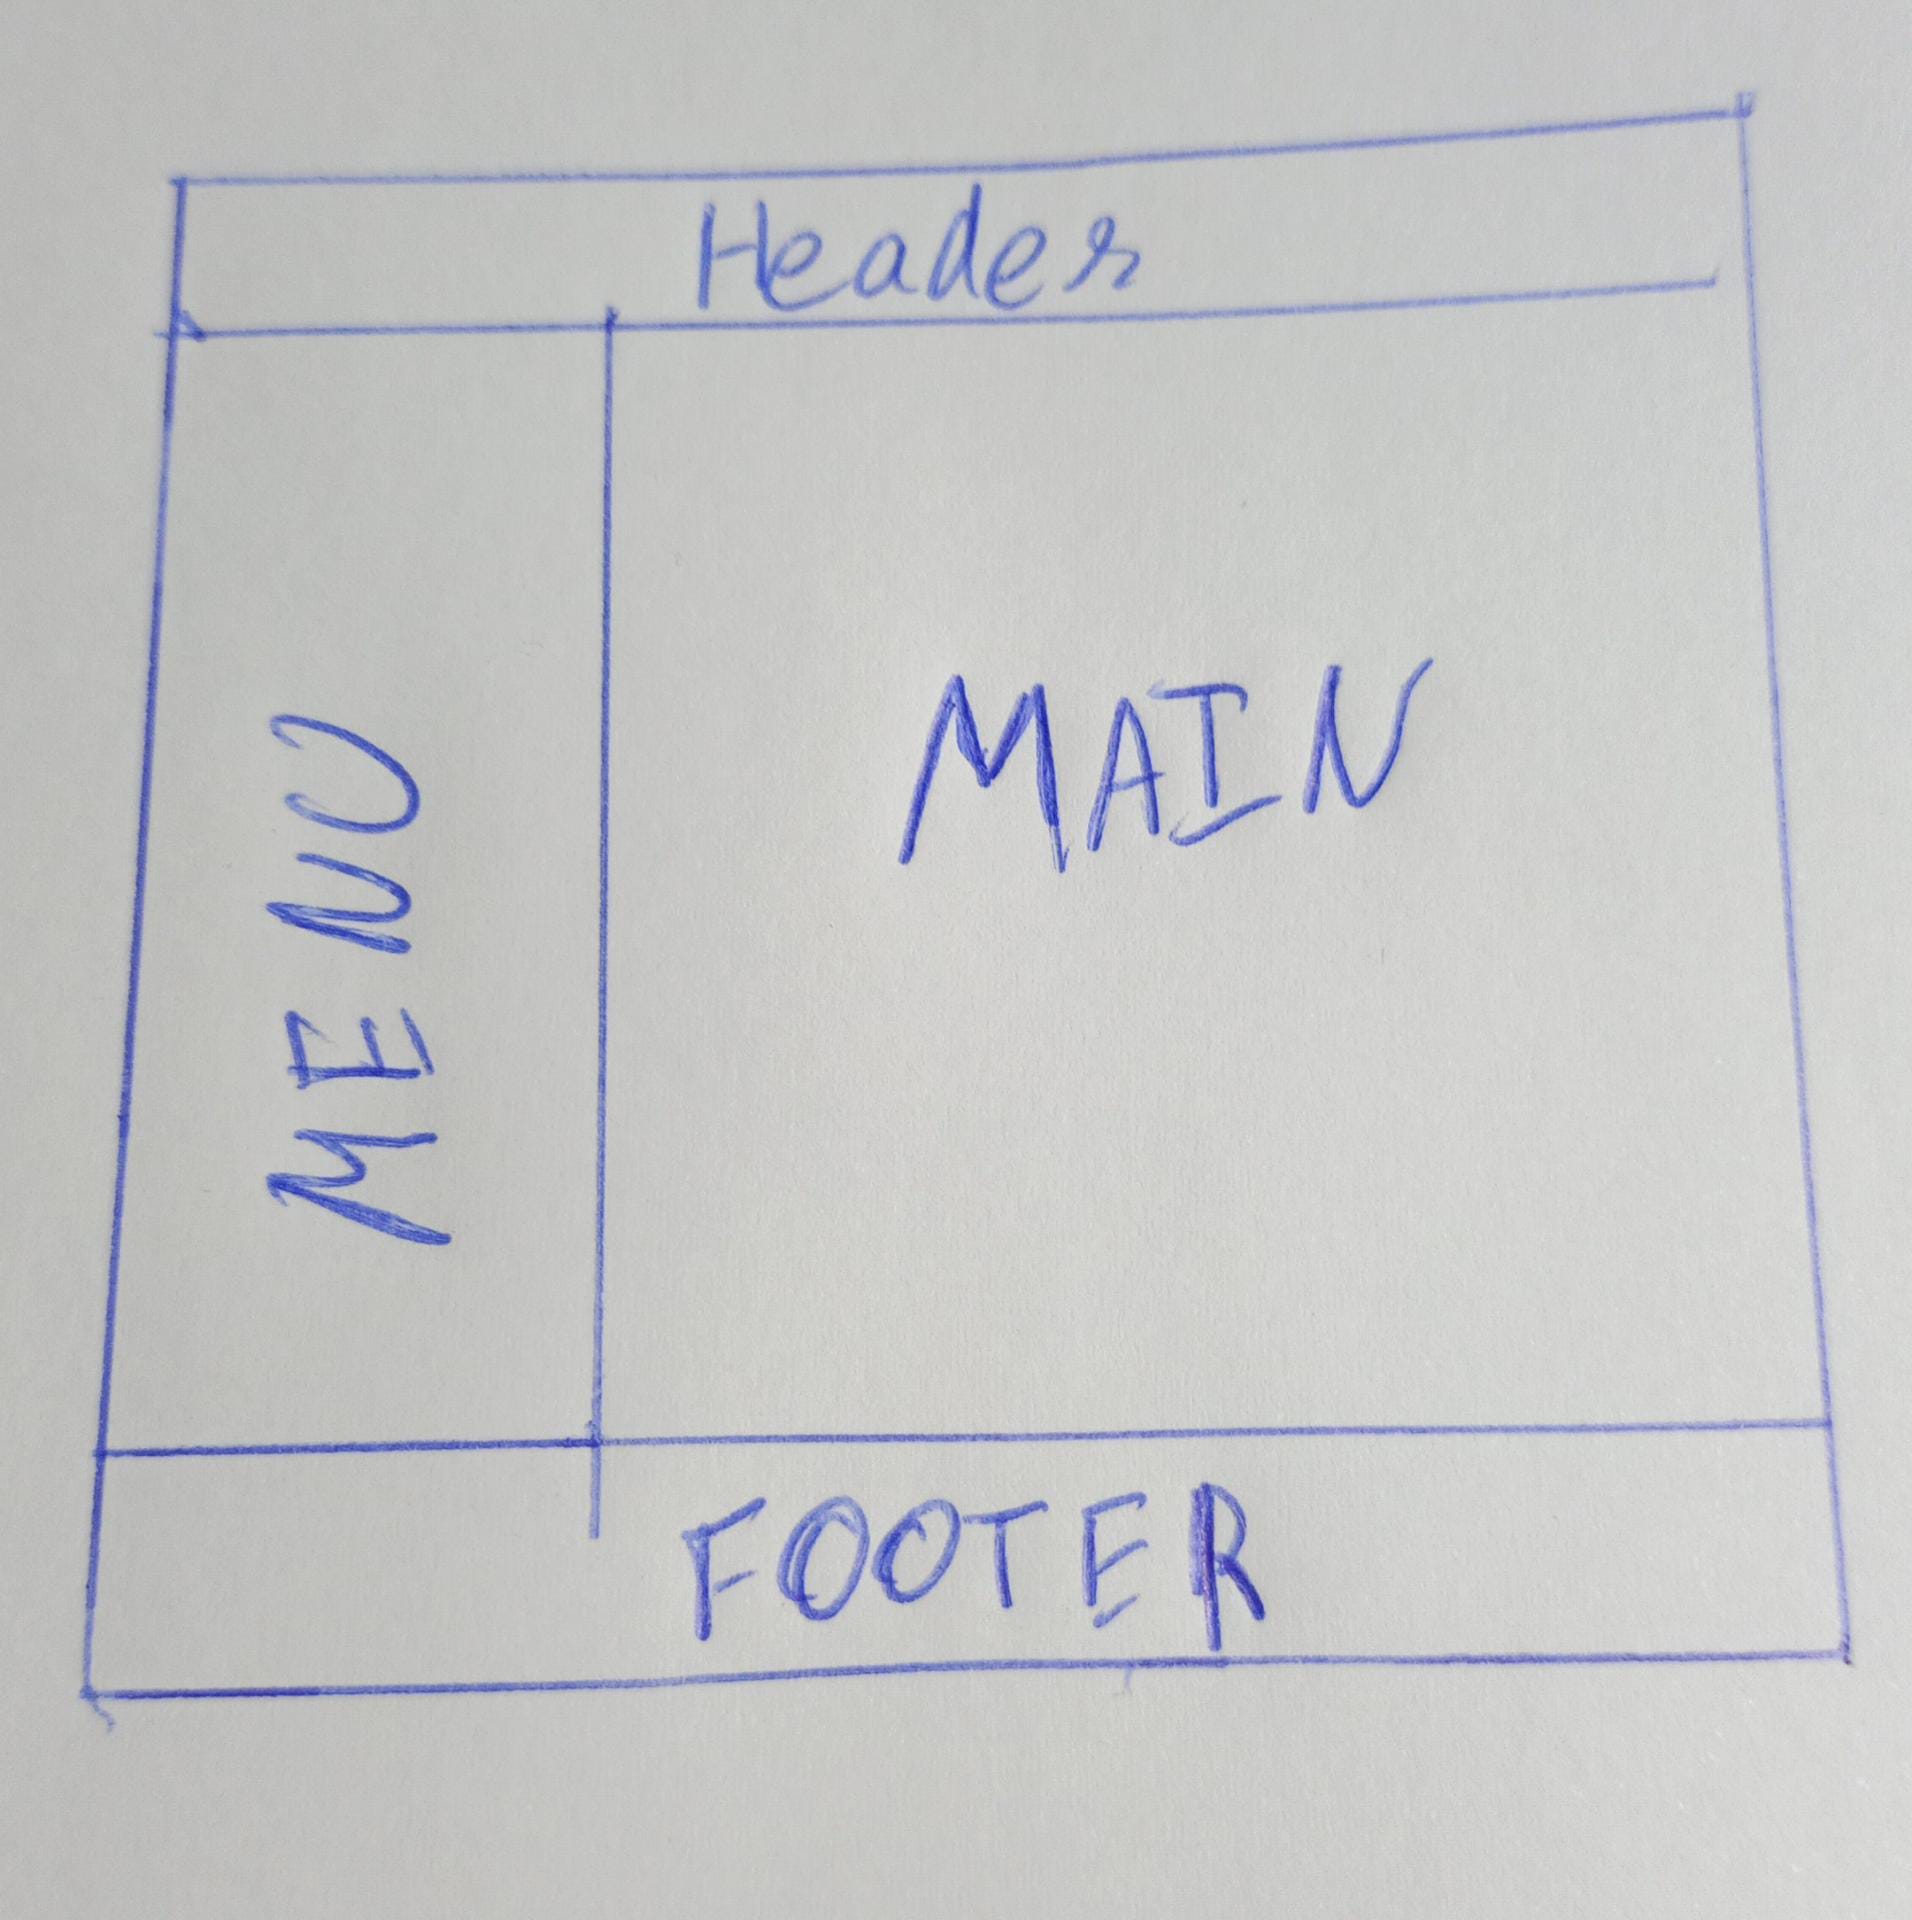 Header
MENU
MAIN
FOOTER